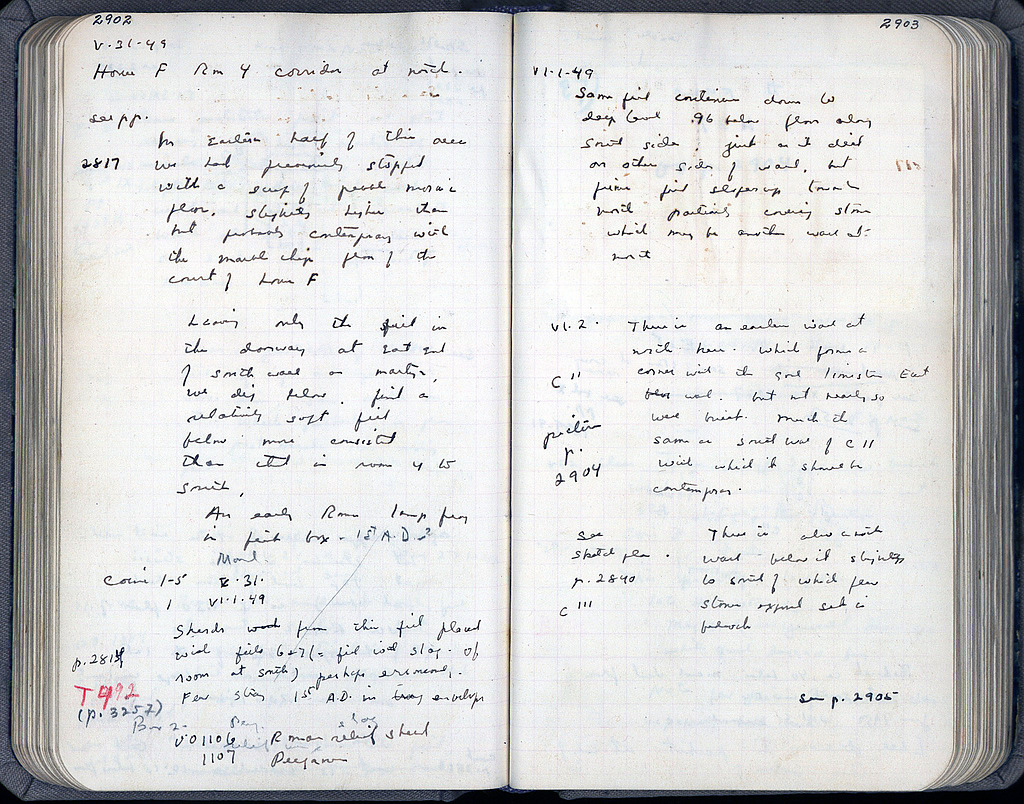 2902
V·31·49
House F Rm 4 corridor at north.
see pp.
In Eastern half of this area
2817 we had previously stopped
with a scrap of pebble mosaic
floor, slightly higher than
but probably contemporary with
the marble chip floor of the
court of House F
Leaving only the fill in
the doorway at East End
of South wall as martyr,
we dig below, find a
relatively soft fill
below more consistent
than that in room 4 to
South.
An early Roman lamp frag
in find box - 1st A.D.?
Coins 1-5 V·31·
1 VI·1·49
Sherds from this fill placed
p.2814
room at south) perhaps erroneously.
T492
Few stray 1st A.D. in envelope
(p. 3257)
Box 2
V01106 Roman relief sherd
1107
2903
VI·1·49
Same fill continues down to
deep level .96 below floor along
South side, just as it did
on other side of wall, but
firm fill slopes up toward
north partially covering stone
which may be another wall at
north
VI·2· There is an earlier wall at
north here. which forms a
C" corner with the good limestone East
wall. but not nearly so
well built. much the
picture
p.
2904
same as South wall of C 11
with which it should be
contemporary.
see There is also a north
sketch plan. wall below it slightly
p. 2840 to south of which few
C''' stones appear set in
see p. 2905